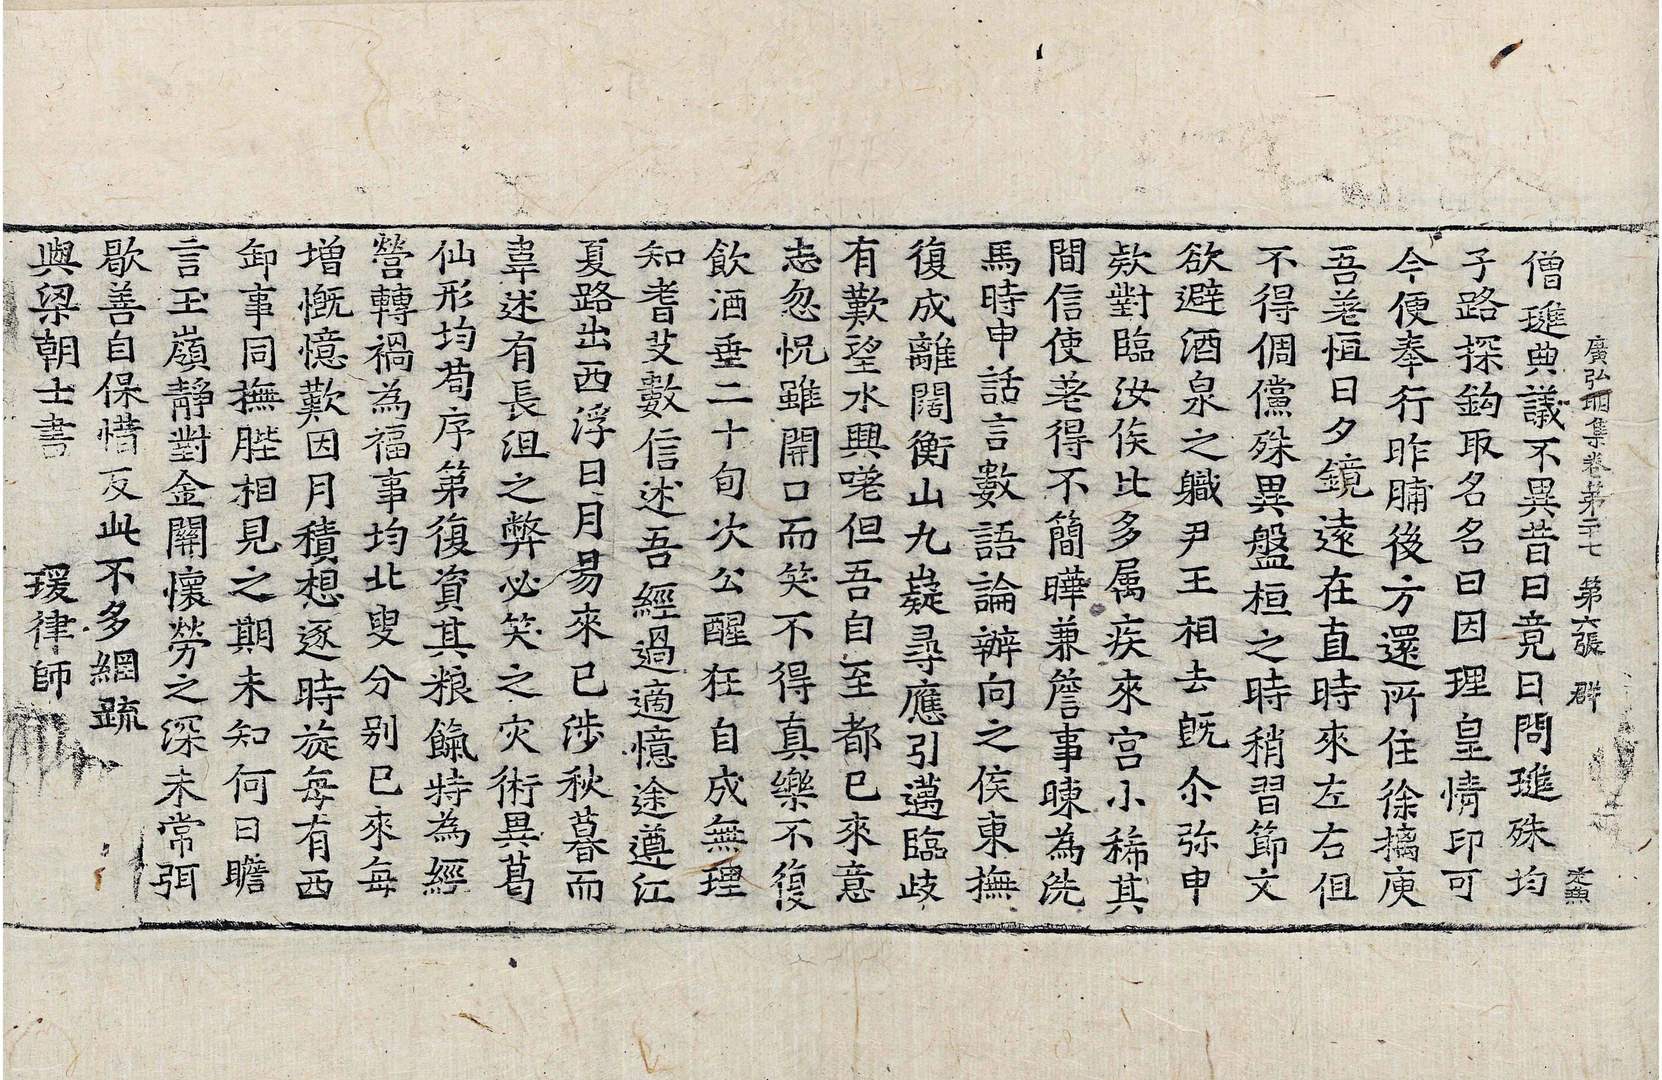 廣弘明集卷第二十七 第六張 群
僧璡典議不異昔日竟日問璡殊均
子路探鈎取名名曰因理皇情印可
今便奉行昨晡後方還所住徐摛庾
吾荖恒日夕鏡遠在直時來左右但
不得倜儻殊異盤桓之時稍習節文
欲避酒泉之軄尹王相去既尒弥申
欵對臨汝侯比多属疾來宮小稀其
間信使荖得不簡曄兼詹事暕為洗
馬時申話言數語論辦向之侯東撫
復成離闊衡山九嶷尋應引邁臨歧
有歎望水興嗟但吾自至都已來意
志忽怳雖開口而笑不得真樂不復
飲酒垂二十旬次公醒狂自成無理
知耆艾數信述吾經過適憶途遵江
夏路出西浮日月易來已涉秋暮而
韋述有長沮之弊必笑之灾術異葛
仙形均荀序第復資其粮餼特為經
營轉禍為福事均北叟分别已來每
增慨憶歎因月積想逐時旋每有西
卸事同撫髀相見之期未知何日瞻
言玉嶺靜對金關懷勞之深未常弭
歇善自保惜反此不多網䟽
與梁朝士書 瑗律師